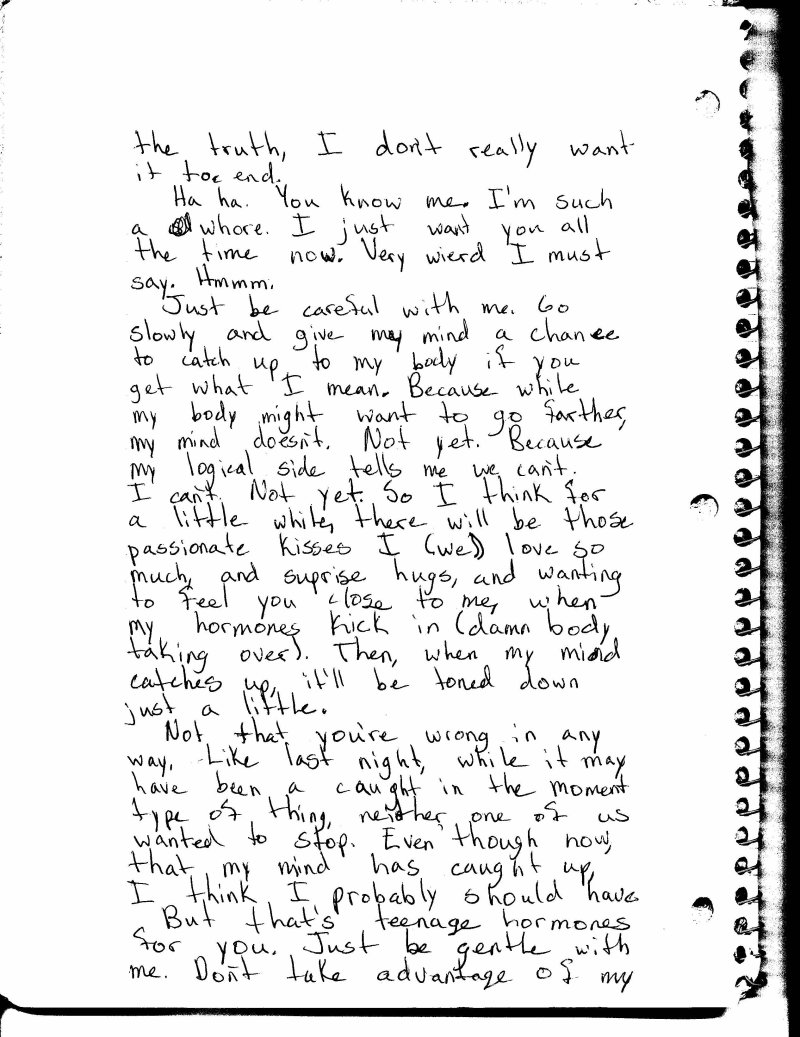 the truth, I don't really want
it toe end.
Ha ha. You know me. I'm such
a whore. I just want you all
the time now. Very wierd I must
say. Hmmm.
Just be careful with me. Go
slowly and give my mind a chance
to catch up to my body if you
get what I mean. Because while
my body might want to go farther,
my mind doesn't. Not yet. Because
my logical side tells me we can't.
I can't. Not yet. So I think for
a little while, there will be those
passionate kisses I (we!) love so
much, and suprise hugs, and wanting
to feel you close to me, when
my hormones kick in (damn body
taking over). Then, when my mind
catches up, it'll be toned down
just a little.
Not that you're wrong in any
way. Like last night, while it may
have been a caught in the moment
type of thing, neither one of us
wanted to stop. Even though now,
that my mind has caught up,
I think I probably should have
But that's teenage hormones
for you. Just be gentle with
me. Don't take advantage of my